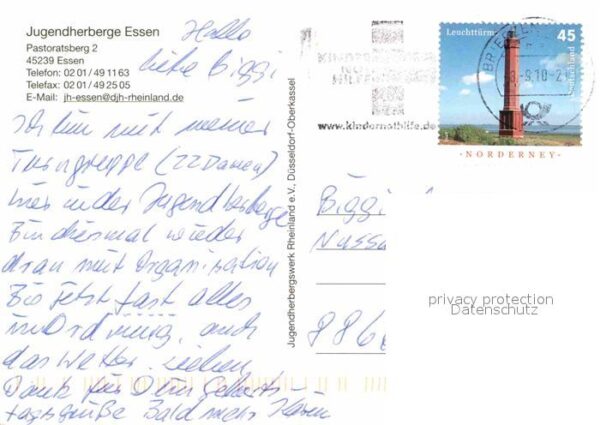 Jugendherberge Essen
Pastoratsberg 2
45239 Essen
Telefon: 02 01 / 49 11 63
Telefax: 02 01 / 49 25 05
E-Mail: jh-essen@djh-rheinland.de
Hallo
liebe Biggi
Ich bin mit meiner
Turngruppe (22 Damen)
hier in der Jugendherberge
Bin diesmal wieder
dran mit Organisation
Bis jetzt fast alles
in Ordnung, auch
das Wetter. Lieben
Dank für Deine Geburts-
tagsgrüße Bald mehr Karin
Jugendherbergswerk Rheinland e.V., Düsseldorf-Oberkassel
KINDERNOTHILFE
www.kindernothilfe.de
Leuchttürme
45
Deutschland
NORDERNEY
Biggi
Nussa
886
privacy protection
Datenschutz